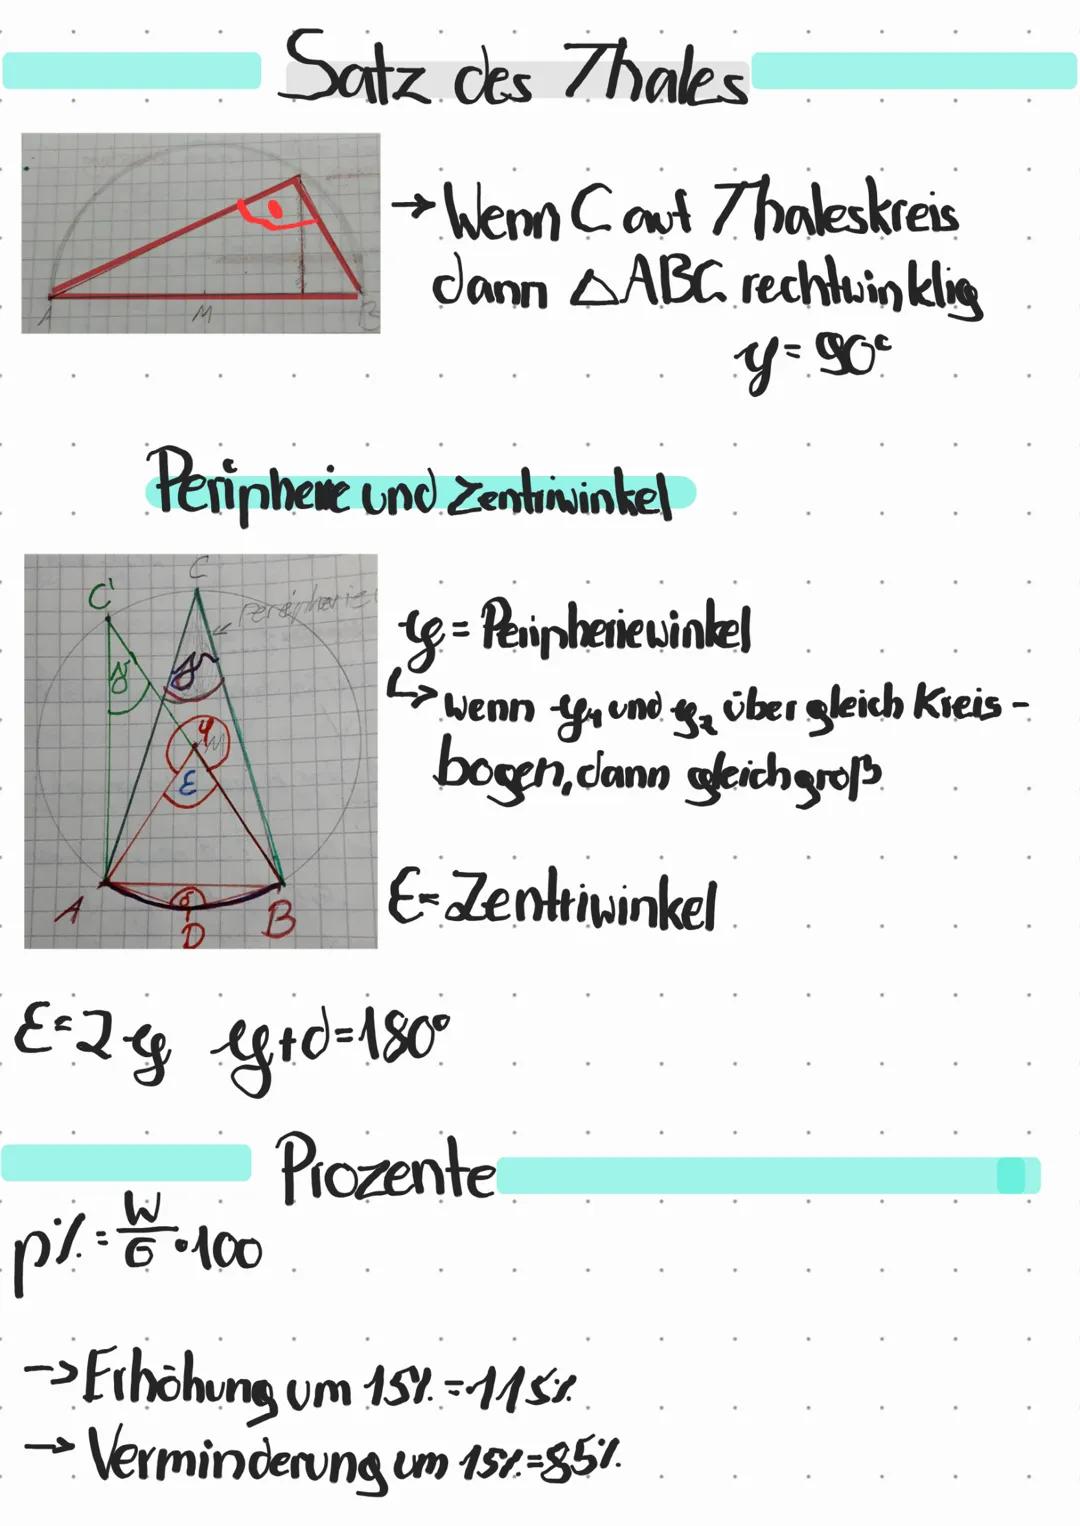 Satz des Thales
A M B
→ Wenn C auf Thaleskreis
dann △ABC rechtwinklig
γ = 90°
Peripherie und Zentriwinkel
C
C'
γ γ
φ M
ε
A D B
γ = Peripheriewinkel
↳ wenn γ₁ und γ₂ über gleich Kreis-
bogen, dann gleich groß
ε = Zentriwinkel
ε = 2γ γ + d = 180°
Prozente
p% = W/G · 100
→ Erhöhung um 15% = 115%
→ Verminderung um 15% = 85%